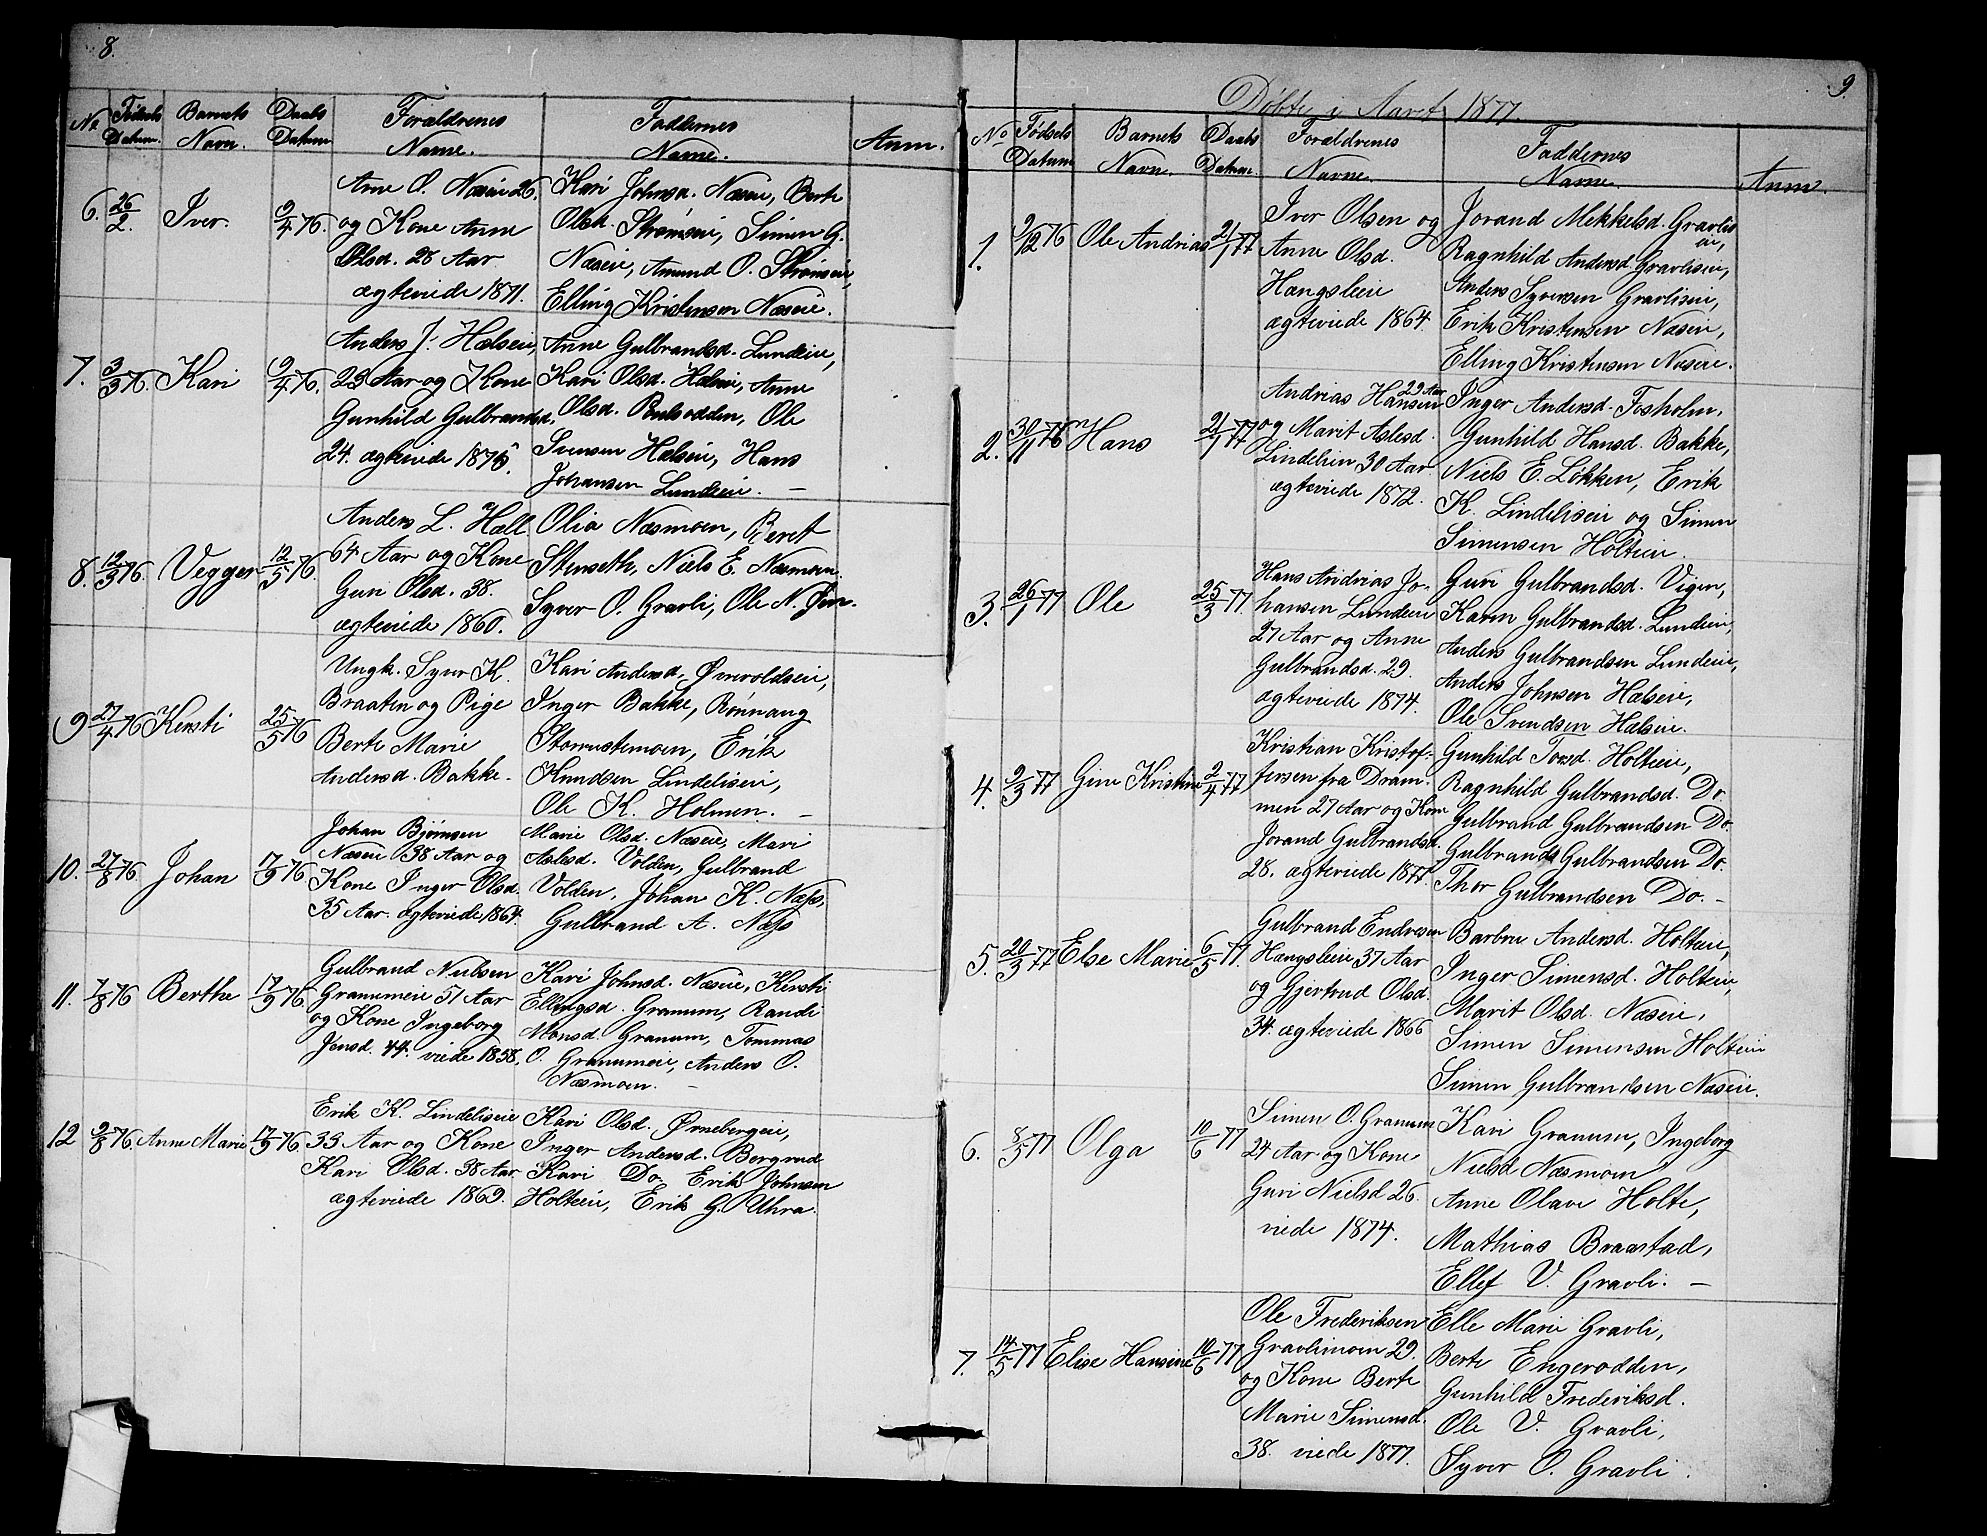 8.
No. Fødsels Datum. Barnets Navn. Daabs Datum Forældrenes Navne. Faddernes Navne. Anm.
6. 26/2. Iver. 9/4 76.
Arne O. Næseie 26.
og Kone Anne
Olsd. 28 Aar
ægteviede 1871.
Kari Johnsd. Næseie, Berte
Olsd. Strømseie, Simen G.
Næseie, Amund O. Strømseie,
Elling Kristensen Næseie.
7. 3/3 76. Kari 9/4 76.
Anders J. Hælseie,
23 Aar og Kone
Gunhild Gulbrandsd.
24. ægteviede 1875.
Anne Gulbrandsd. Lundeie,
Kari Olsd. Hælseie, Anne
Olsd. Poulsodden, Ole
Svensen Hælseie, Hans
Johansen Lundeie. —
8. 12/3 76. Vegger 12/5 76.
Anders L. Hæll
64 Aar og Kone
Guri Olsd. 38.
ægteviede 1860.
Olia Næsmoen, Beret
Stenseth, Niels E. Næsmoen.
Syver O. Gravli, Ole N.
9 27/4 76 Kersti 25/5 76
Ungk. Syver K.
Braaten og Pige
Berte Marie
Andersd. Bakke.
Kari Andersd. Øvervoldseie,
Inger Bakke, Rønnaug
Storrustemoen, Erik
Knudsen Lindeliseie,
Ole K. Holmen. —
10. 27/8 76. Johan 17/9 76.
Johan Bjørnsen
Næseie 38 Aar og
Kone Inger Olsd.
35 Aar. ægteviede 1864.
Marie Olsd. Næseie, Mari
Aslesd. Volden, Gulbrand
Volden, Johan K. Næss,
Gulbrand A. Næss
11. 7/8 76 Berthe 17/9 76
Gulbrand Nielsen
Granumeie 51 Aar
og Kone Ingeborg
Jensd. 44. viede 1858.
Kari Johnsd. Næseie, Kersti
Ellingsd. Granum, Randi
Monsd. Granum, Tommas
O. Granumeie, Anders O.
Næsmoen. —
12 9/8 76. Anne Marie 17/9 76.
Erik K. Lindeliseie
33 Aar og Kone
Kari Olsd. 38 Aar
ægteviede 1869.
Kari Olsd. Ørnebergeie,
Inger Andersd. Bergrud
Kari Do. Erik Johnsen
Holteeie, Erik G. Uhra.
9.
Døbte i Aaret 1877.
No Fødsels Datum Barnets Navn. Daabs Datum. Forældrenes Navne. Faddernes Navne. Anm.
1. 9/12 76 Ole Andrias 21/1 77
Iver Olsen og
Anne Olsd.
Hængsleeie
ægteviede 1864
Jorand Mekkelsd. Gravlis
eie,
Ragnhild Andersd Gravliseie,
Anders Syversen Gravliseie,
Erik Kristensen Næseie,
Elling Kristensen Næseie.
2. 30/11 76 Hans 21/1 77
Andrias Hansen 29 Aar
og Marit Aslesd.
Lindelien 30 Aar
ægteviede 1872.
Inger Andersd. Fosholm,
Gunhild Hansd. Bakke,
Niels E. Løkken, Erik
K. Lindeliseie og Simen
Simensen Holteeie.
3. 26/1 77 Ole 25/3 77.
Hans Andrias Jo-
hansen Lundeeie
27 Aar og Anne
Gulbrandsd. 29.
ægteviede 1874.
Guri Gulbrandsd. Vigen,
Karen Gulbrandsd. Lundeie,
Anders Gulbrandsen Lundeie,
Anders Johnsen Hælseie,
Ole Svendsen Hælseie.
4. 2/3 77 Gine Kristine 2/4 77
Kristian Kristof-
fersen fra Dram-
men 27 Aar og Kone
Jorand Gulbrandsd.
28. ægteviede 1877.
Gunhild Torsd. Holteeie,
Ragnhild Gulbrandsd. Do.
Gulbrand Gulbrandsen Do.
Gulbrand Gulbrandsen Do.
Thor Gulbrandsen Do. —
5. 20/3 77 Else Marie 6/5 77.
Gulbrand Endresen
Hængsleeie 37 Aar
og Gjertrud Olsd.
34. ægteviede 1866
Barbro Andersd. Holteeie,
Inger Simensd. Holteeie,
Marit Olsd. Næseie,
Simen Simensen Holteeie
Simen Gulbrandsen Næseie.
6. 8/5 77 Olga 10/6 77
Simen O. Granum
24 Aar og Kone
Guri Nielsd 26.
viede 1874.
Kari Granum, Ingeborg
Nielsd Næsmoen
Anne Olave Holte,
Mathias Braastad,
Ellef V. Gravli. —
7. 14/5 77 Elise Hansine 10/6 77
Ole Frederiksen
Gravlimoen 29.
og Kone Berte
Marie Simensd.
38. viede 1877.
Elle Marie Gravli,
Berte Engerodden,
Gunhild Frederiksd.
Ole V. Gravli,
Syver O. Gravli.